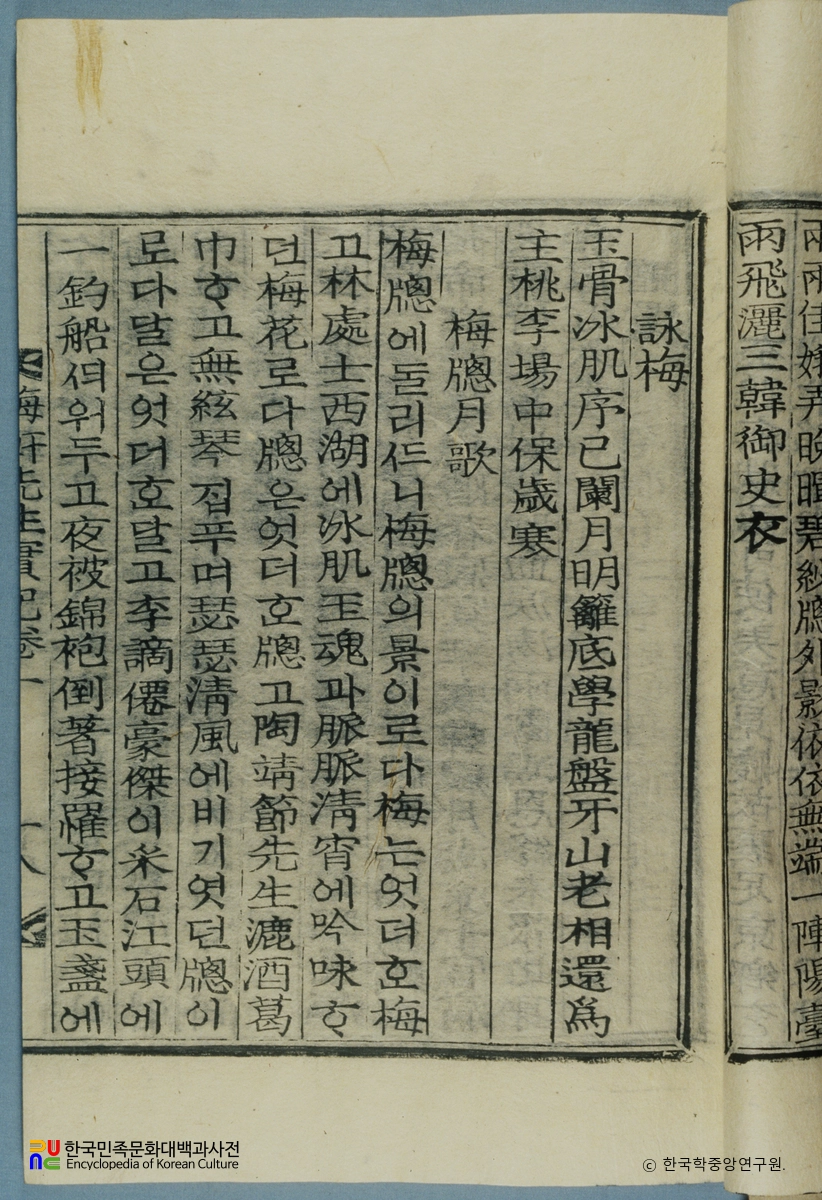 兩兩佳弄晩暉碧紗牕外影依依無端一陣陽臺
雨飛灑三韓御史衣
詠梅
玉骨冰肌序已闌月明籬底學龍盤牙山老相還爲
主桃李場中保歲寒
梅牕月歌
梅牕에돌리드니梅牕의景이로다梅는엇더ᄒᆞᆫ梅
고林處士西湖에冰肌玉魂과脈脈淸宵에吟味ᄒᆞ
던梅花로다牕은엇더ᄒᆞᆫ牕고陶靖節先生漉酒葛
巾ᄒᆞ고無絃琴집푸며瑟瑟淸風에비기엿던牕이
로다달은엇더ᄒᆞᆫ달고李謫僊豪傑이采石江頭에
一釣船ᄯᅴ워두고夜被錦袍倒著接罹ᄒᆞ고玉盞에
梅軒先生實記卷一 十八
한국민족문화대백과사전
Encyclopedia of Korean Culture
© 한국학중앙연구원.